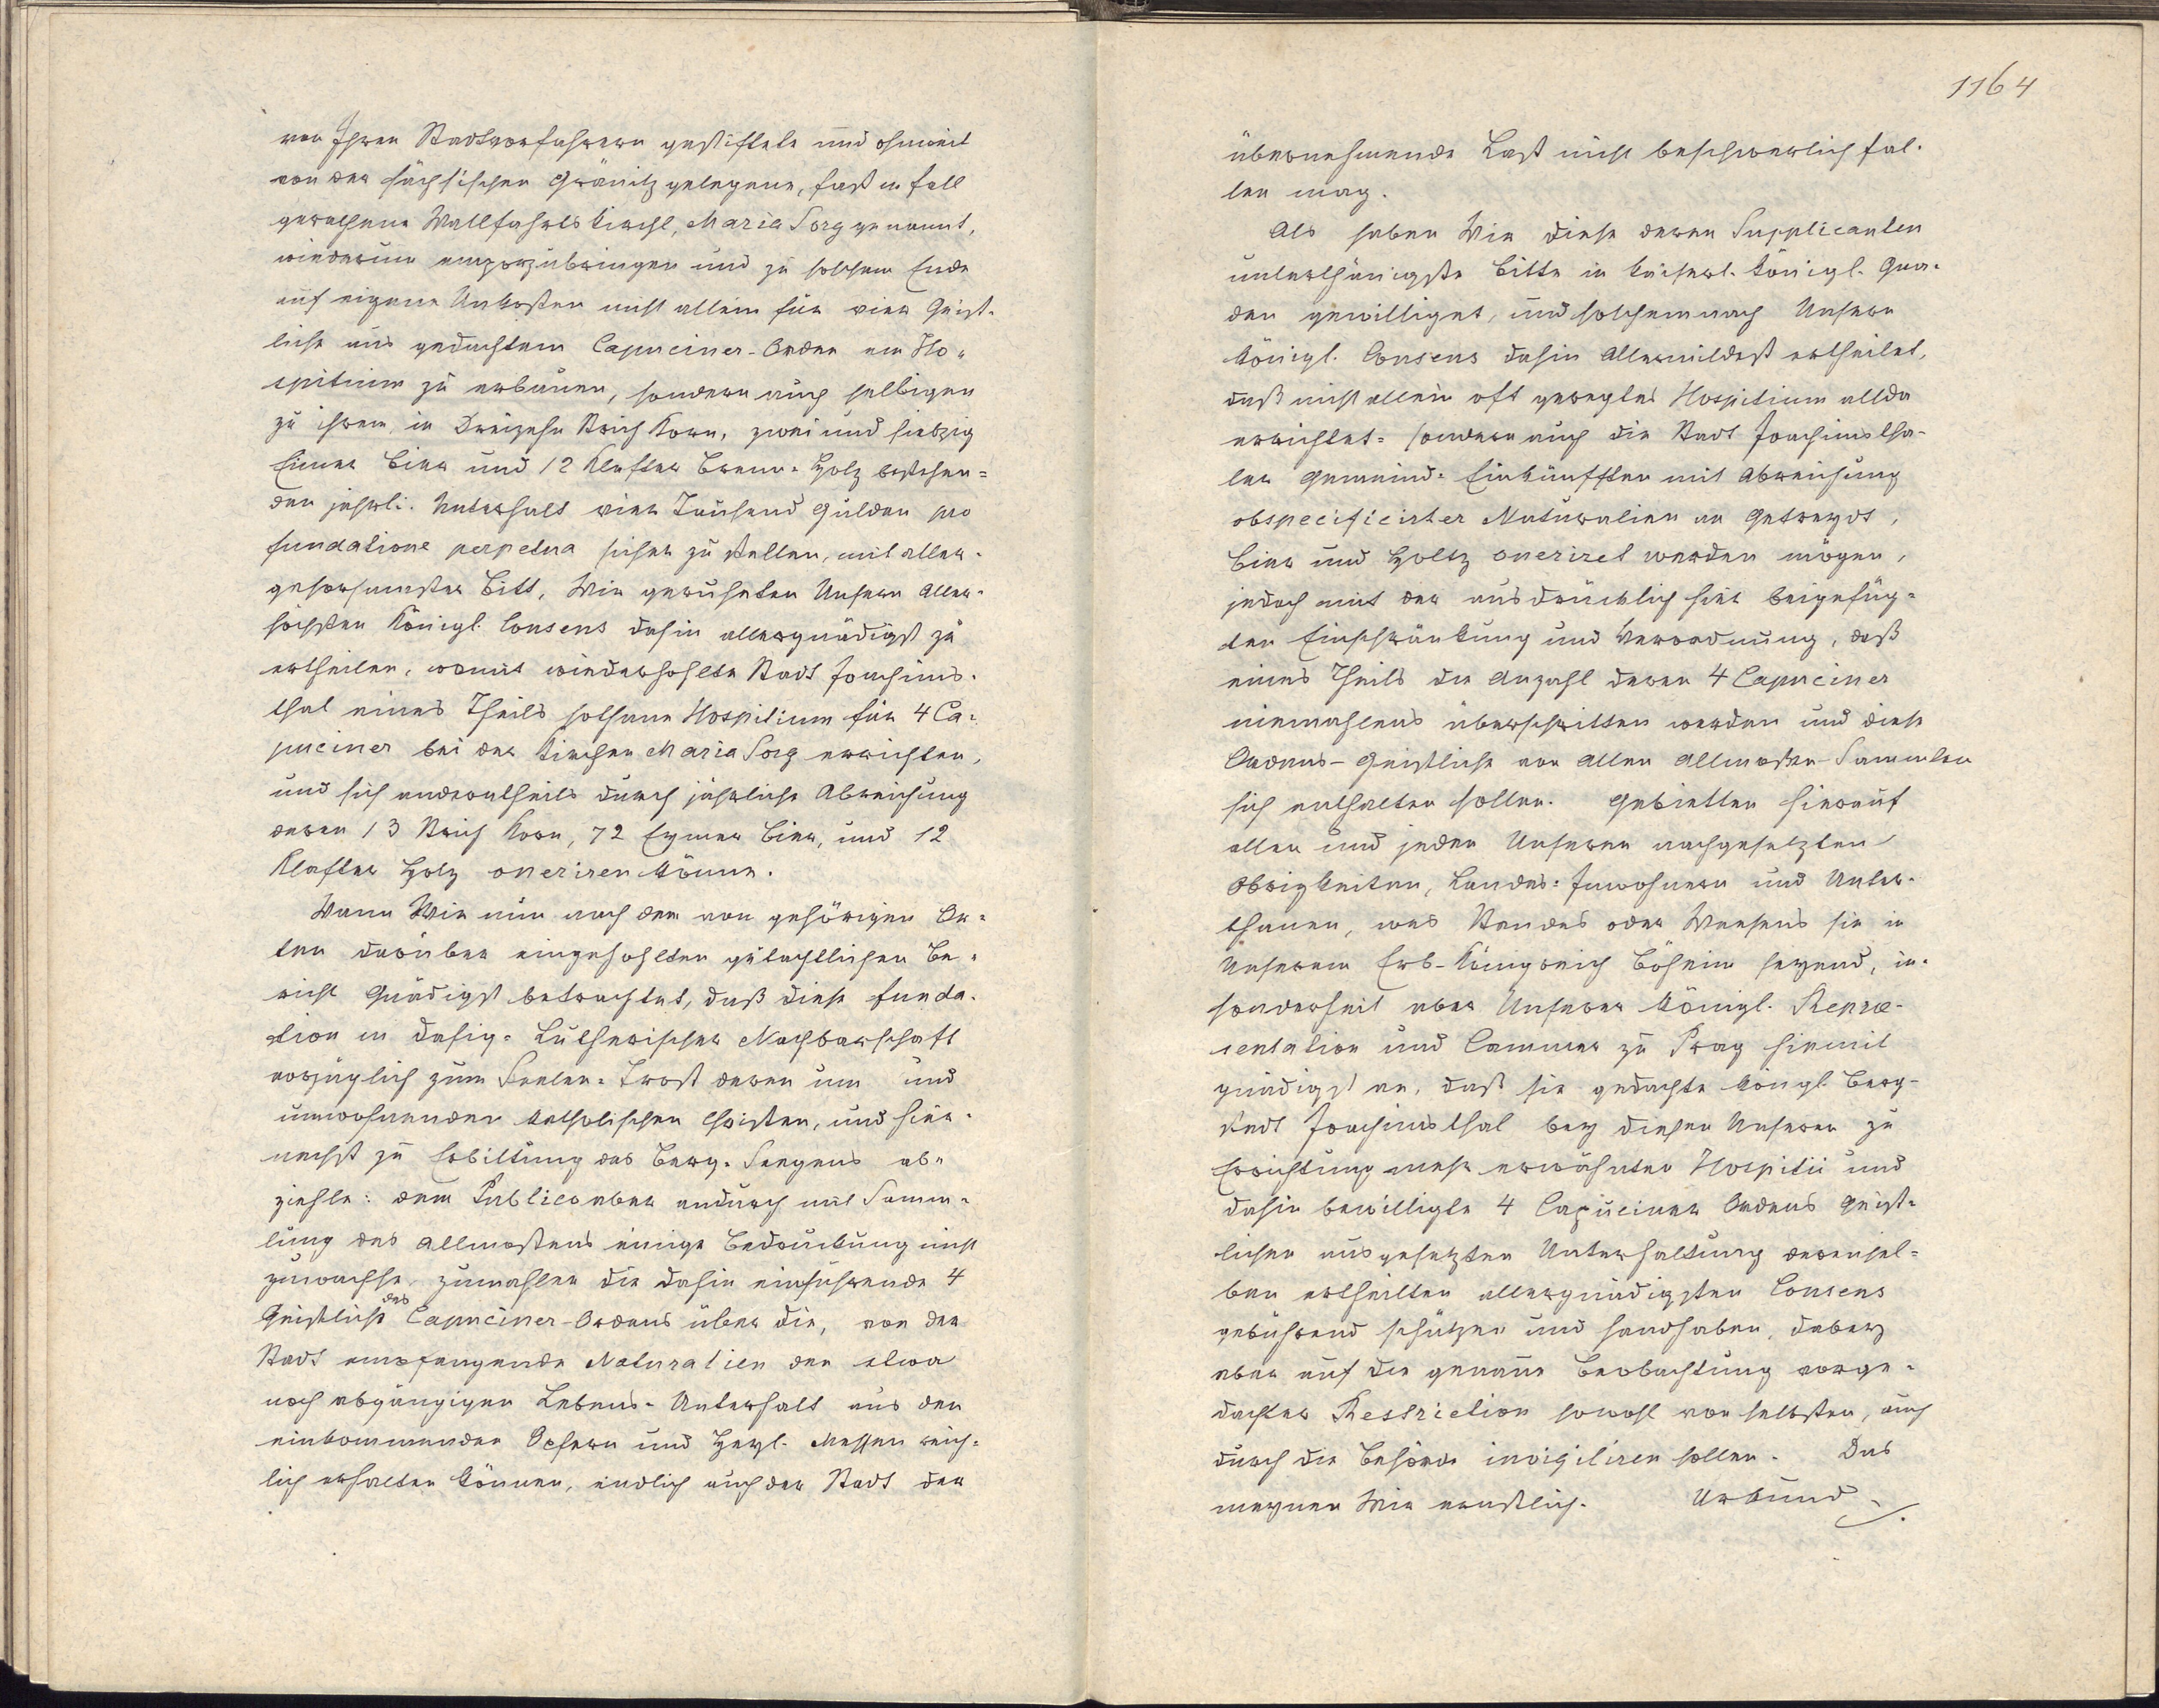 von Ihren Stadtvorfahrern gestiftete und ohnweit
von der sächsischen Gränitz gelegene, fast in fall
gerathene Wallfahrts Kirchl, Maria Sorg genannt,
wiederum emporzubringen und zu solchem Ende
auf eigene Unkosten nicht allein für vier Geist-
liche aus gedachtem Capuciner-Orden ein Ho-
spitium zu erbauen, sondern auch selbigen
zu ihrem, in Dreizehn Strich Korn, zwei und siebzig
Eimer Bier und 12 Klafter Brenn-Holz bestehen=
den jährl: Unterhalt vier Tausend Gulden pro
fundatione perpetua sicher zu stellen, mit aller-
gehorsamster Bitt, Wir geruheten Unsern Aller-
höchsten Königl. Consens dahin allergnädigst zu
ertheilen, womit wiederhohlte Stadt Joachims-
thal eines Theils sothane Hospitium für 4 Ca-
puciner bei der Kirchen Maria Sorg errichten,
und sich anderntheils durch jährliche Abreichung
deren 13 Strich Korn, 72 Eymer Bier, und 12
Klafter Holz oneriren könne.
Wann Wir nun nach dem von gehörigen Or=
ten darüber eingehohlten gutachtlichen Be-
richt Gnädigst betrachtet, daß diese funda-
tion in dasig- Lutherischer Nachbarschaft
vorzüglich zum Seelen-Trost deren um und
umwohnenden katholischen Christen, und hier-
nechst zu Erbittung des Berg-Seegens ab-
ziehle: dem Publico aber andurch mit Samm-
lung des Allmosens einige Bedruckung nicht
zuwachse, zumahlen die dahin einführende 4
Geistliche des Capuciner-Ordens über die, von der
Stadt empfangende Naturalien den etwa
noch abgängigen Lebens-Unterhalt aus den
einkommenden Opfern und Heyl. Messen reich-
lich erhalten können, endlich auch der Stadt der
1164
übernehmende Last nicht beschwerlich fal-
len mag.
Als haben Wir diese deren Supplicanten
unterthänigste Bitte in kaiserl. königl. Gna-
den gewilliget, und solchemnach Unsern
königl. Consens dahin Allermildest ertheilet,
daß nicht allein oft geregtes Hospitium allda
errichtet- sondern auch die Stadt Joachimstha-
ler Gemeind-Einkünfften mit Abreichung
obspecificirter Naturalien an Getreyde,
Bier und Holtz oneriret werden mögen,
jedoch mit der ausdrücklich hier beigefüg-
ten Einschränkung und Verordnung, daß
eines Theils die Anzahl deren 4 Capuciner
niemahlens überschritten werden und diese
Ordens-Geistliche von allen Allmosen-Sammlen
sich enthalten sollen. Gebietten hierauf
allen und jeden Unseren nachgesetzten
Obrigkeiten, Landes-Inwohnern und Unter-
thanen, was Standes oder Weesens sie in
Unserem Erb-Königreich Böheim seyend, in-
sonderheit aber Unserer königl. Reprae-
sentation und Cammer zu Prag hiemit
gnädigst an, daß sie gedachte köngl. Berg-
stadt Joachimsthal bey diesen Unseren zu
Errichtung mehr erwähnten Hospitii und
dahin bewilligte 4 Capuciner Ordens Geist-
lichen ausgesetzten Unterhaltung derensel-
ben ertheilten allergnädigsten Consens
gebührend schützen und handhaben, dabey
aber auf die genaue Beobachtung vorge-
dachter Restriction sowohl von selbsten, auch
durch die Behörde invigiliren sollen. Das
meynen Wir ernstlich. Urkund